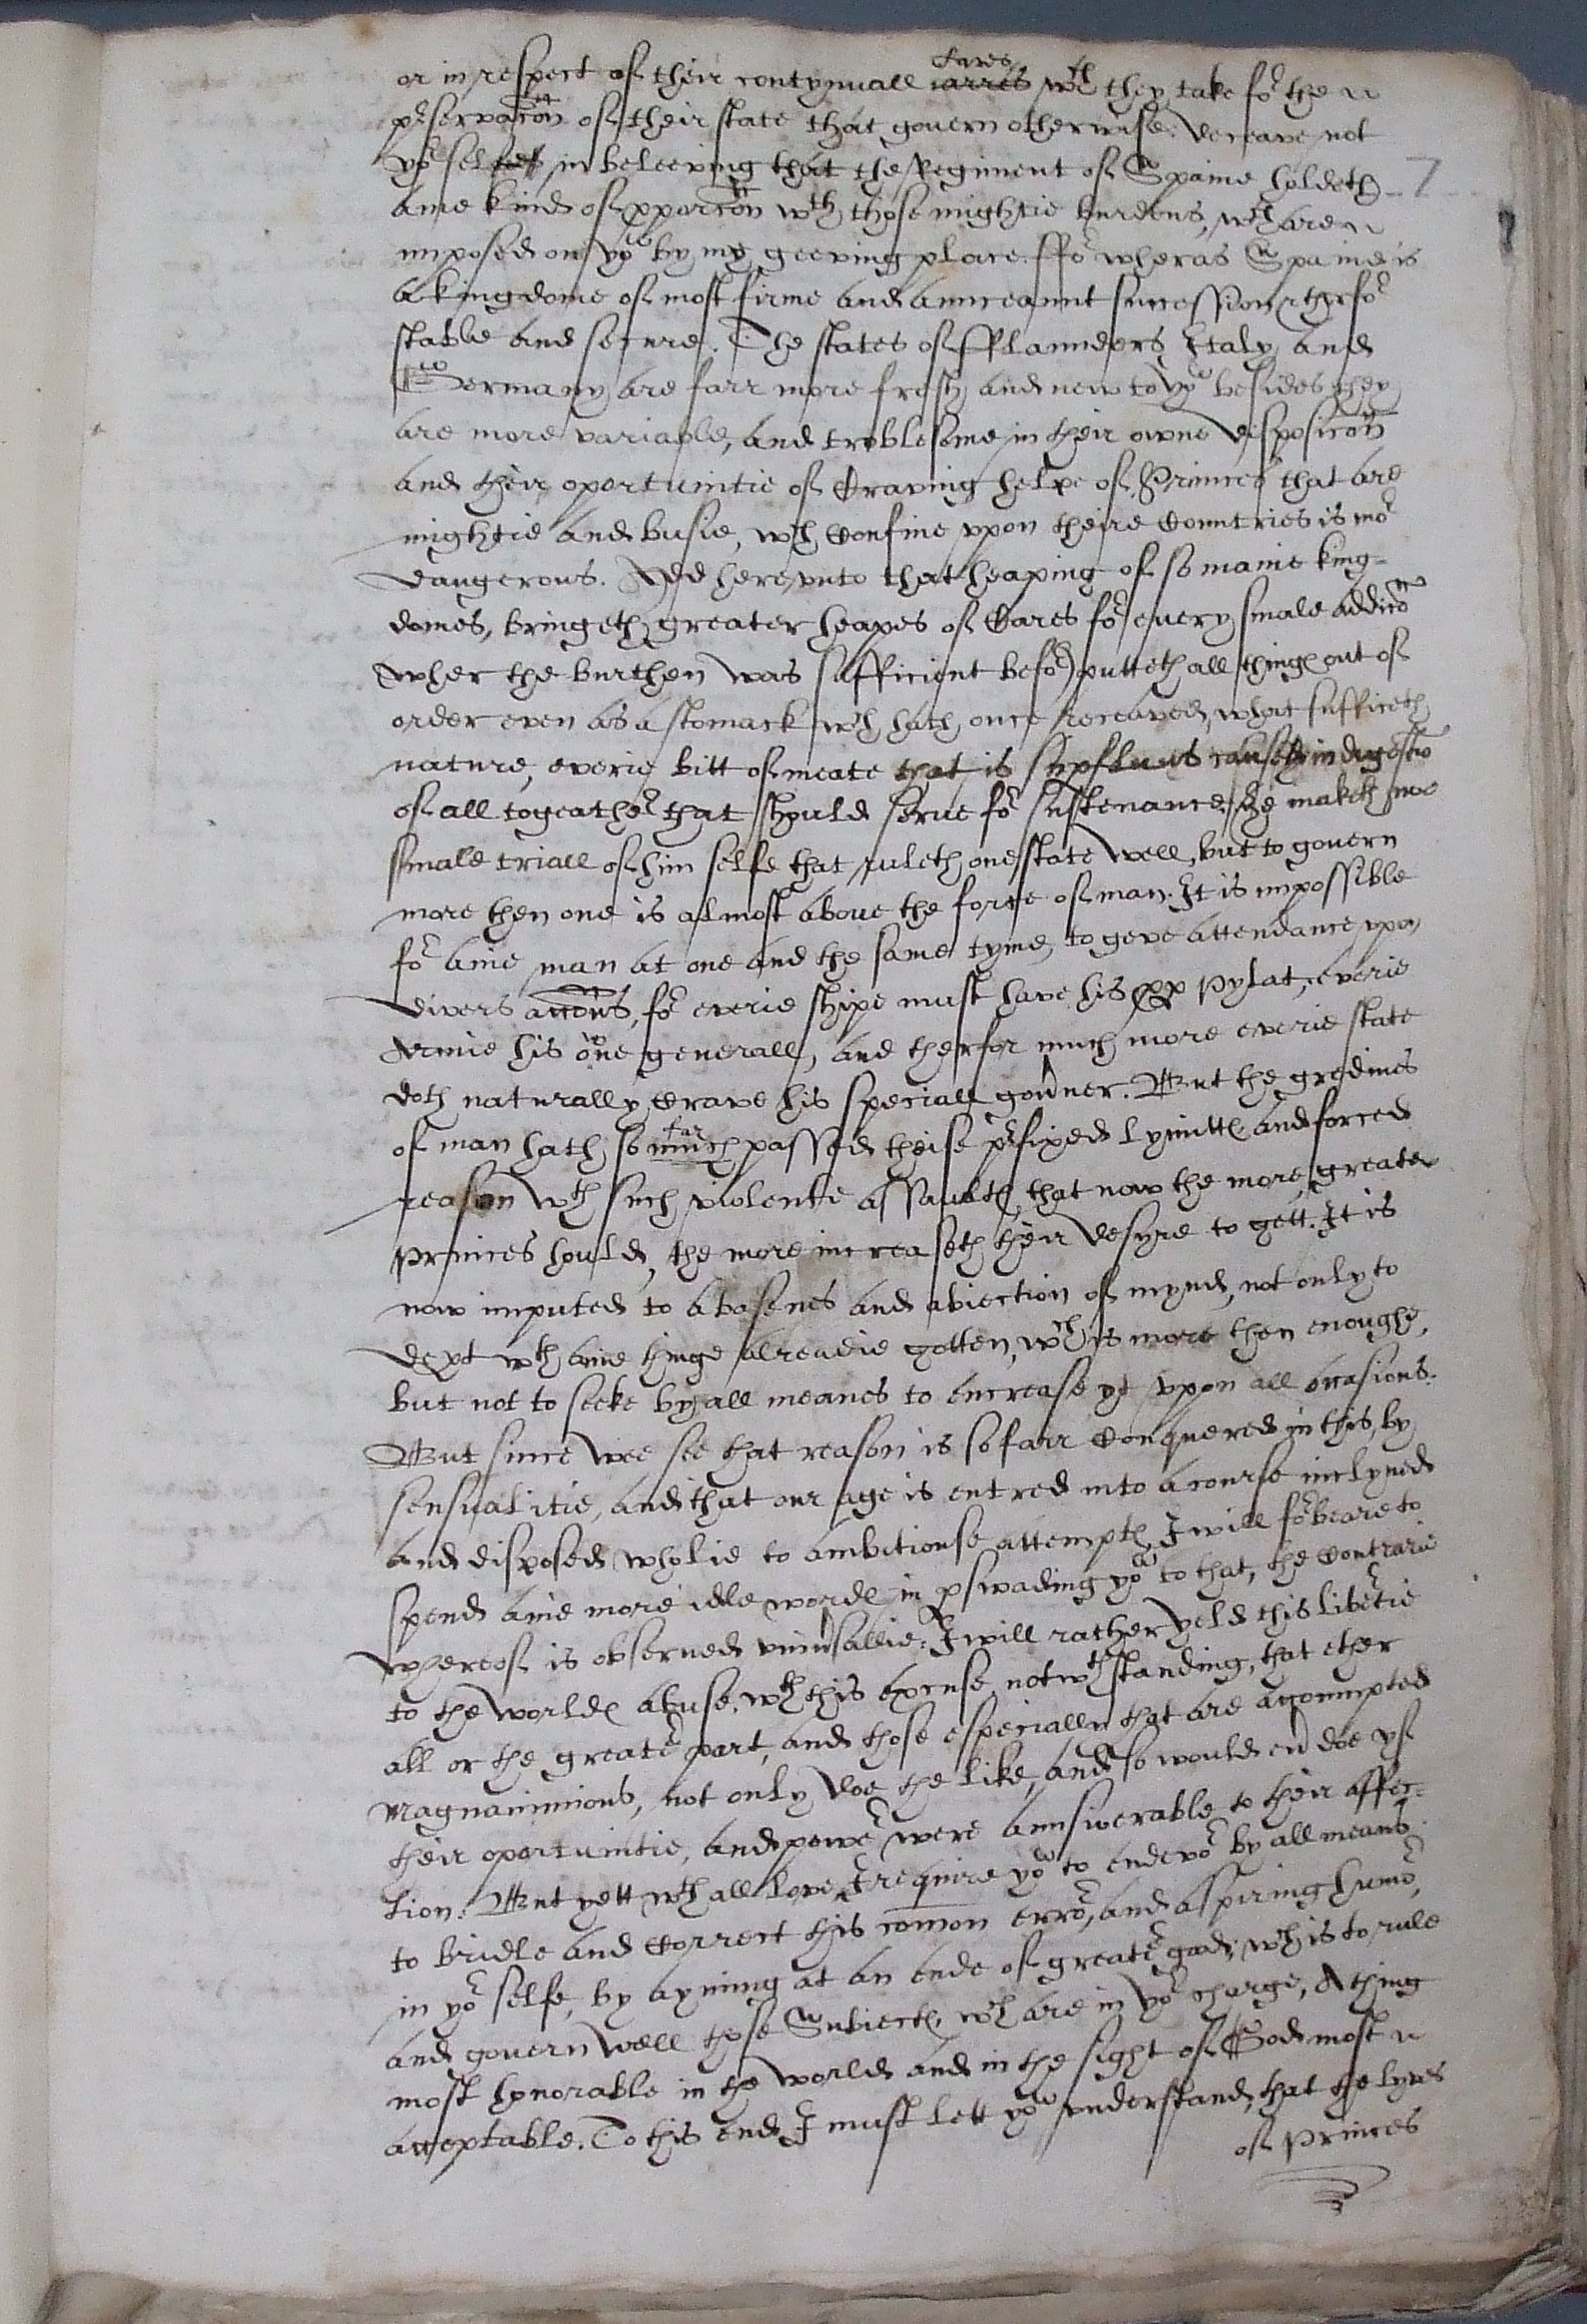 or in respect of their contynuall cares wch they take for the
pr̲servac̃on of their state that govern otherwise. Deceave not
yor self in beleeving that the Regiment of Spaine holdeth
anie kind of pporc̃on wth those mightie burdens, wch are
imposed on yow by my geeving place. ffor wheras Spaine is
a kingdome of most firme and aunceannt succession & therfor
stable and secure. The states of fflaunders Italy and
Germany are farr more fresh and new to yow besides they
are more variable, and troblesome in their owne disposic̃on
and their oportunitie of craving helpe of Princes that are
mightie and busie, wch confine vpon theire Countries is mor
dangerous. Add here vnto that heaping of so manie king-
domes, bringeth greater heapes of Cares for every smale addic̃o
wher the burthen was sufficient befor) putteth all things out of
order even as a stomack wch hath once receaved, what sufficeth
nature, everie bitt of meate that is supfluus causeth indigestio
of all togeather that should serve for sustenance. He maketh noe
smale triall of him selfe that ruleth one state well, but to govern
more then one is almost above the force of man. It is impossible
for anie man at one and the same tyme, to geve attendance vpon
divers acc̃ons, for everie shipe must have his pp Pylat, everie
Armie his owne generall, and therfor much more everie state
doth naturally crave his speciall govner. But the gredines
of man hath so much far passed theise prfixed lymitts and forced
reason wth such violente assaults, that now the more greater
princes hould, the more increaseth their desyre to gett. It is
now imputed to a basenes and abiection of mynd, not only to
dept wth anie thinge alreadie gotten, wch is more then enoughe,
but not to seeke by all meanes to encrease yt vpon all occasions.
But since wee see that reason is so farr Conquered in this, by
sensualitie, and that our age is entred into a course inclyned
and disposed wholie to ambitiouse attempts, I will forbeare to
spend anie more idle words in pswading yow to that, the Contrarie
whereof is observed univsallie: I will rather yeld this libertie
to the worlds abuse, wth this excuse notwthstanding, that ether
all or the greater part, and those especially that are acompted
Magnanimous, not only doe the like, and so would ev doe yf
their oportunitie, and power were aunswerable to their affec-
tion. But yett wth all love I require yow to endevor by all means
to bridle and Correct this com̃on error, and aspiring humor,
in yor selfe, by ayming at an ende of greater good; wch is to rule
and govern well those Subiects wch are in yor charge, A thing
most honorable in the world and in the sight of God most
acceptable. To this end I must lett yow vnderstand, that the lyves
of Princes
7